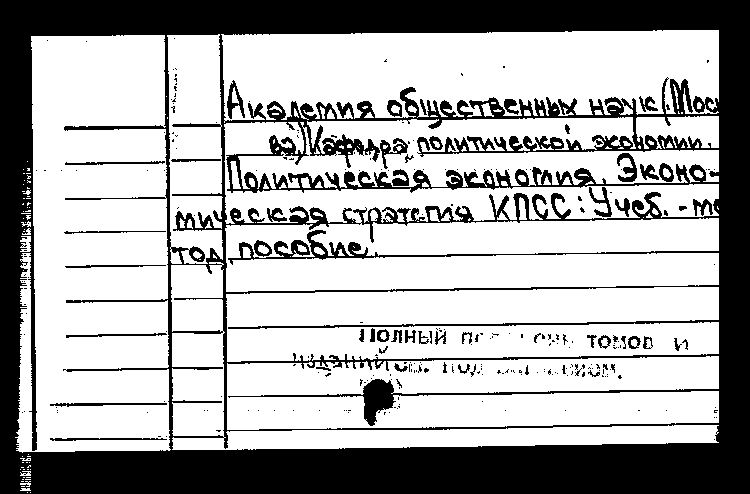 Академия общественных наук (Моск
ва). Кафедра политической экономии.
Политическая экономия. Эконо-
мическая стратегия КПСС: Учеб. - ме
тод. пособие.
Полный томов и
изданий под